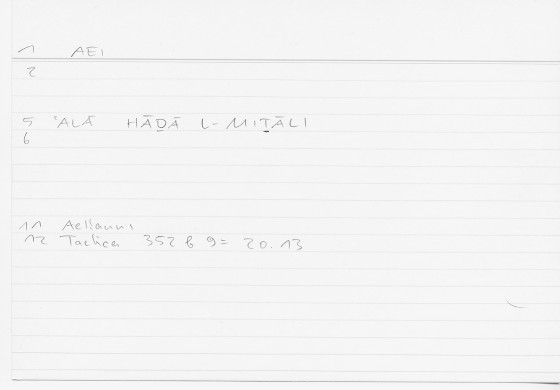 1 AEI
2
5 ʿALĀ HĀḎĀ L-MIṮĀLI
6
11 Aelianni
12 Tactica 352 b 9 = 20.13